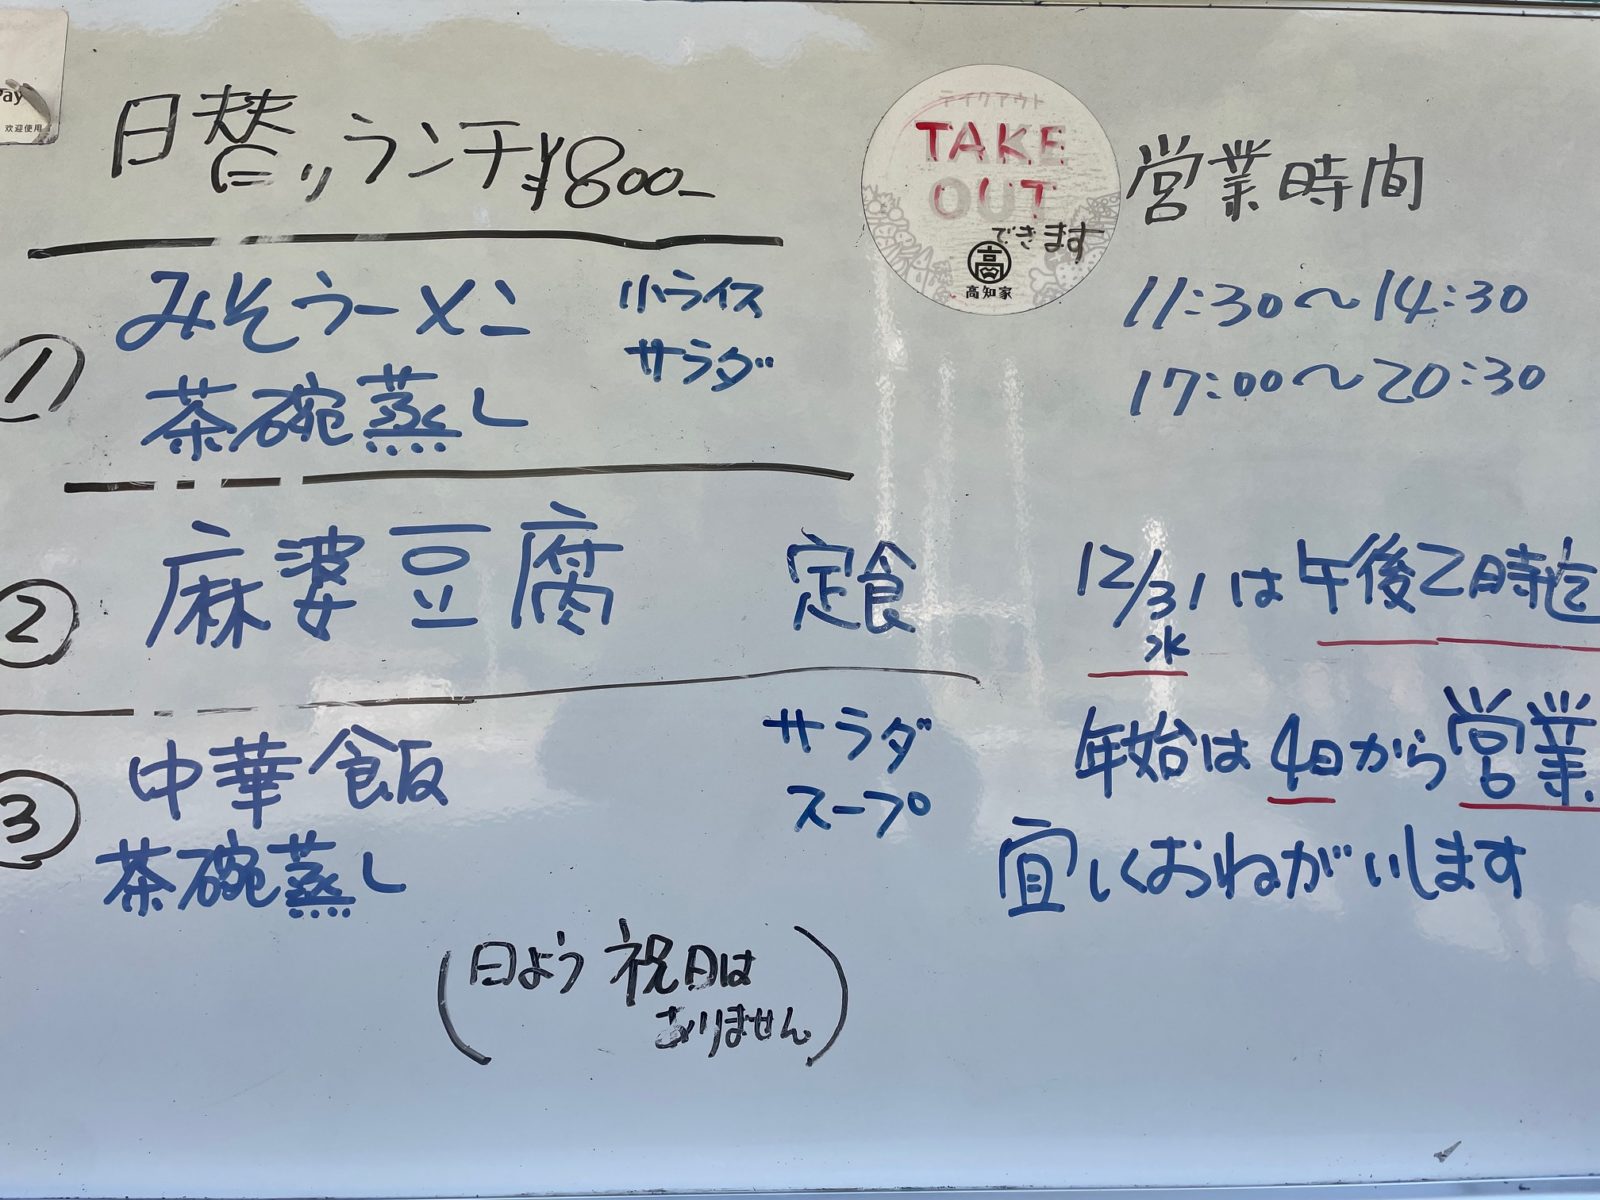 Pay
欢迎使用
日替りランチ¥800-
① みそラーメン 小ライス
茶碗蒸し サラダ
② 麻婆豆腐 定食
③ 中華飯 サラダ
茶碗蒸し スープ
(日よう 祝日は
ありません)
テイクアウト
TAKE
OUT
できます
高
高知家
営業時間
11:30〜14:30
17:00〜20:30
12/31は午後2時迄
水
年始は4日から営業
宜しくおねがいします